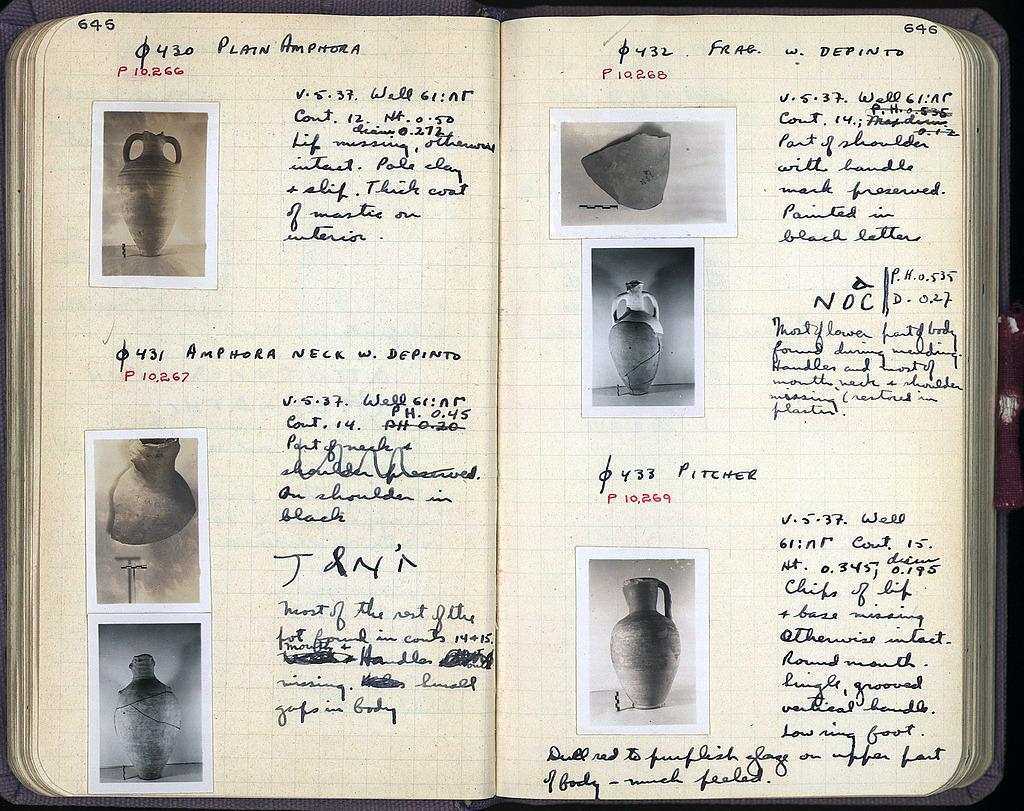 645
φ430 PLAIN AMPHORA
P 10,266
V.5.37. Well 61:ΛΓ
Cont. 12. Ht. 0.50
diam 0.272
Lip missing, otherwise
intact. Pale clay
+ slip. Thick coat
of mastic on
interior.
φ431 AMPHORA NECK W. DEPINTO
P 10,267
V.5.37. Well 61:ΛΓ
P.H. 0.45
Cont. 14. PH 0.20
Part of neck +
shoulder preserved.
On shoulder in
black
Most of the rest of the
pot found in conts 14+15.
mouth +
Handles
missing. Small
gaps in body
646
φ432 FRAG. W. DEPINTO
P 10,268
V.5.37. Well 61:ΛΓ
P.H. 0.535
Cont. 14.; Max diam
0.12
Part of shoulder
with handle
mark preserved.
Painted in
black letters
Δ
NOC
P.H. 0.535
D. 0.27
Most of lower part of body
found during mending.
Handles and most of
mouth, neck + shoulder
missing (restored in
plaster).
φ433 PITCHER
P 10,269
V.5.37. Well
61:ΛΓ Cont. 15.
diam
Ht. 0.345; 0.195
Chips of lip
+ base missing
Otherwise intact.
Round mouth.
Single, grooved
vertical handle.
Low ring foot.
Dull red to purplish glaze on upper part
of body – much peeled.